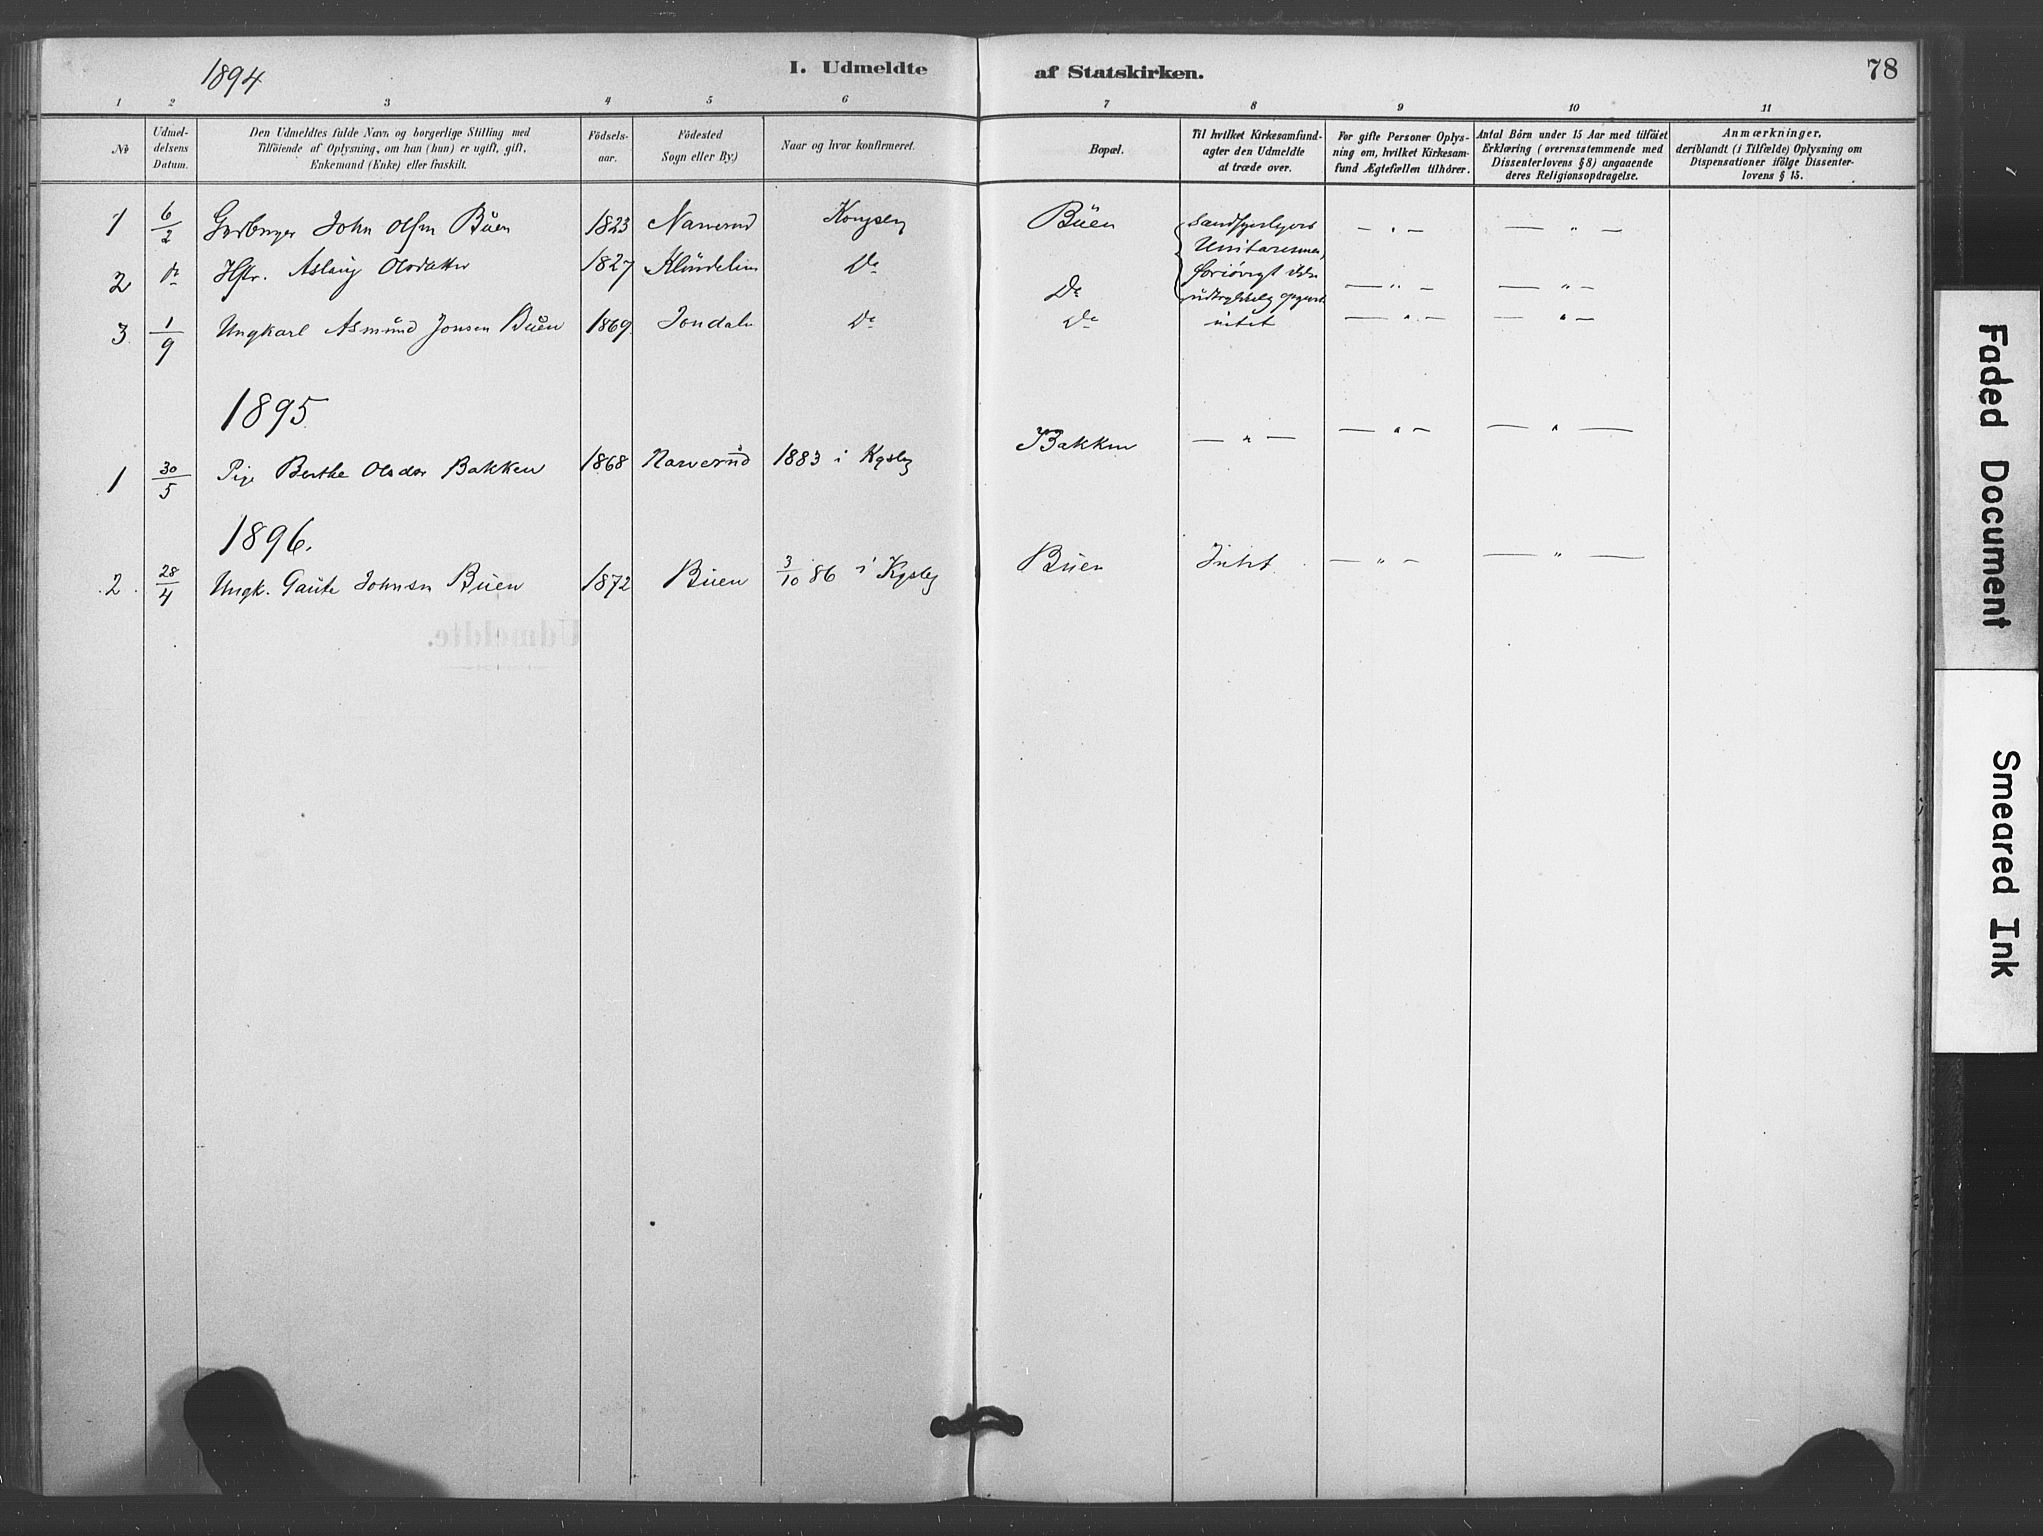 1894
I. Udmeldte af Statskirken.
78
1 2 3 4 5 6 7 8 9 10 11
No
Udmeldelsens Datum.
Den Udmeldtes fulde Navn og borgerlige Stilling med
Tilföiende af Oplysning, om han (hun) er ugift, gift,
Enkemand (Enke) eller fraskilt.
Födselsaar.
Födested
Sogn eller By.)
Naar og hvor konfirmeret.
Bopæl.
Til hvilket Kirkesamfund-
agter den Udmeldte
at træde over.
For gifte Personer Oplys-
ning om, hvilket Kirkesam-
fund Ægtefællen tilhörer.
Antal Börn under 15 Aar med tilföiet
Erklæring (overensstemmende med
Dissenterlovens § 8) angaaende
deres Religionsopdragelse.
Anmærkninger,
deriblandt (i Tilfælde) Oplysning om
Dispensationer ifölge Dissenter-
lovens § 15.
1 6/2 John Olsen Büen 1823 Narverud Kongsbg Büen
Unitarerne,
2 do Aslaug Olsdatter 1827 Do Do
3 1/9 Ungkarl Asmund Jonsen Buen 1869 Jondalen Do Do intet
1895
1 30/5 Pige Berthe Olsdtr Bakken 1868 Narverud 1883 i Kgsbg Bakken — " —
1896.
2. 28/4 Ungk. Gaute Johnsn Buen 1872 Buen 3/10 86 i Kgsbg Buen Intet
Udmeldte.
Faded Document
Smeared Ink